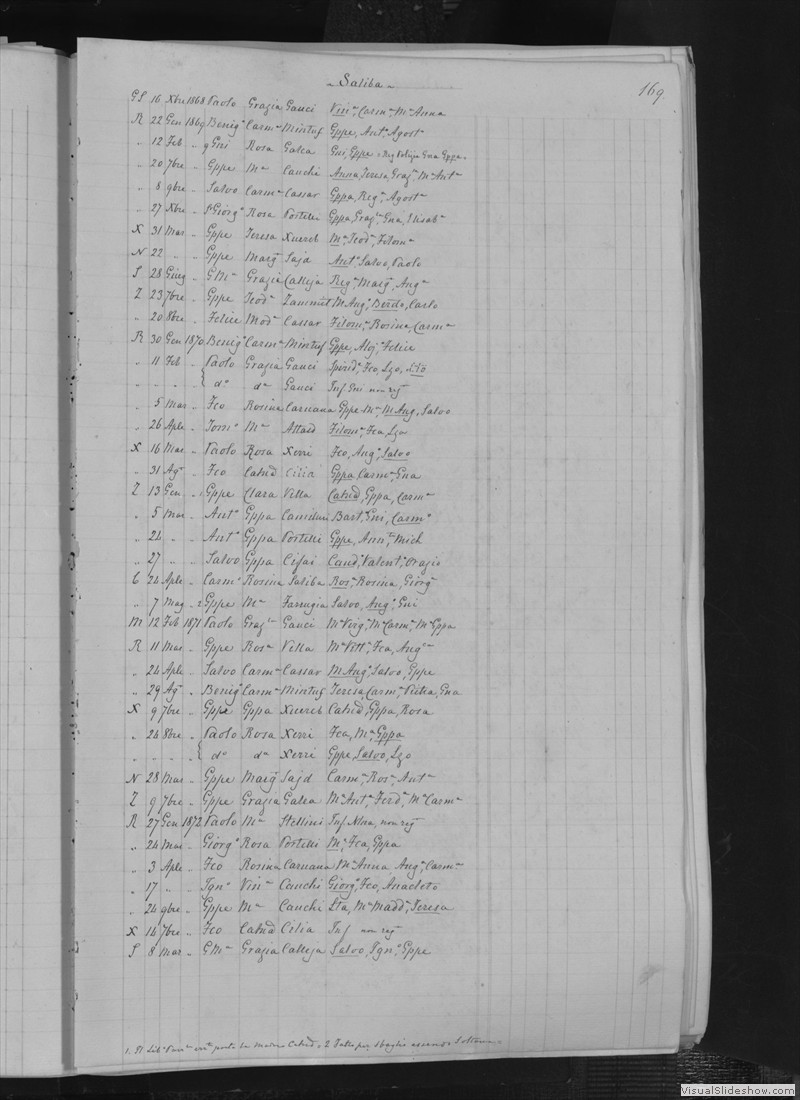 Saliba
169
GS 16 Xbre 1868 Paolo Grazia Gauci Vinc Carma Ma Anna
R 22 Gen 1869 Benigo Carma Mintuf Gppe, Anto, Agosto
" 12 Feb " Gni Rosa Galea Gni, Gppe
" 20 7bre " Gppe Ma Cauchi Anna, Teresa, Graza, Ma Anta
" 8 9bre " Salvo Carma Cassar Gppa, Rega, Agosta
" 27 Xbre " Giorgo Rosa Portelli Gppa, Graza, Gna, Elisaba
X 31 Mar " Gppe Teresa Xuereb Ma Teoda, Filoma
N 22 " " Gppe Marga Sajd Anto, Salvo, Paolo
S 28 Giug " GMa Grazia Calleja Rega, Marga, Anga
Z 23 7bre " Gppe Teoda Zammit M Anga, Berdo, Carlo
" 20 8bre " Felice Moda Cassar Filoma, Rosina, Carma
R 30 Gen 1870 Benigo Carma Mintuf Gppe, Aloj, Felice
" 11 Feb " Paolo Grazia Gauci Spirido, Fco, Lzo,
" " " " do da Gauci Inf Gni non reg
" 5 Mar " Fco Rosina Caruana Gppe Ma M Ang, Salvo
" 26 Aple " Tomo Ma Attard Filoma, Fca, Lzo
X 16 Mar " Paolo Rosa Xerri Fco, Ango, Salvo
" 31 Ago " Fco Catnd Cilia Gppa, Carma, Gna
Z 13 Gen " Gppe Clara Vella Catnd, Gppa, Carma
" 5 Mar " Anto Gppa Camilleri Barto, Gni, Carmo
" 24 " " Anto Gppa Portelli Gppe, Annta, Mich
" 27 " " Salvo Gppa Cefai Cand, Valento, Orazio
C 24 Aple " Carmo Rosina Saliba Rosa, Rosina, Giorga
" 7 Mag " 2 Gppe Ma Farrugia Salvo, Ango, Gni
M 12 Feb 1871 Paolo Graza Gauci Ma Virg, Ma Carma, Ma Gppa
R 11 Mar " Gppe Rosa Vella Ma Vitta, Fca, Anga
" 24 Aple " Salvo Carma Cassar M Anga, Salvo, Gppe
" 29 Ago " Benigo Carma Mintuf Teresa, Carma, Gna
X 9 7bre " Gppe Gppa Xuereb Catnd, Gppa, Rosa
" 24 8bre " Paolo Rosa Xerri Fca, Ma, Gppa
" " " " do da Xerri Gppe, Salvo, Lzo
N 28 Mar " Gppe Marga Sajd Carma, Rosa, Anta
Z 9 7bre " Gppe Grazia Galea Ma Anta, Ferda, Ma Carma
R 27 Gen 1872 Paolo Ma Stellini Inf non reg
" 24 Mar " Giorgo Rosa Portelli Ma, Fca, Gppa
" 3 Aple " Fco Rosina Caruana Ma Anna, Anga, Carma
" 17 " " Igno Vina Cauchi Giorgo, Fco, Anacleto
" 24 9bre " Gppe Ma Cauchi Lta, Ma Madda, Teresa
X 14 7bre " Fco Catnd Cilia Inf non reg
S 8 Mar " GMa Grazia Calleja Salvo, Igno, Gppe
VisualSlideshow.com